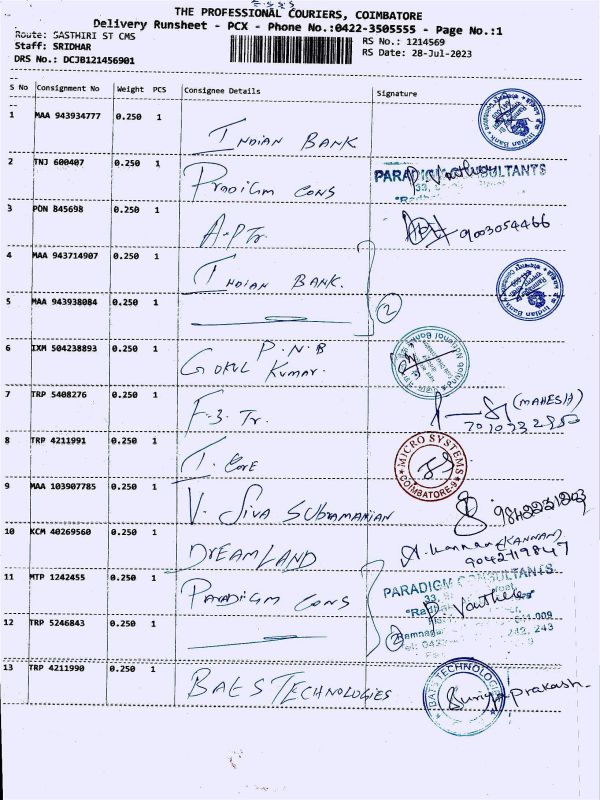 THE PROFESSIONAL COURIERS, COIMBATORE
Delivery Runsheet - PCX - Phone No.:0422-3505555 - Page No.:1
Route: SASTHIRI ST CMS
RS No.: 1214569
Staff: SRIDHAR
RS Date: 28-Jul-2023
DRS No.: DCJB121456901
S No Consignment No Weight PCS Consignee Details Signature
1 MAA 943934777 0.250 1 INDIAN BANK
2 TNJ 600407 0.250 1 PRADIGM CONS PARADIGM CONSULTANTS
3 PON 845698 0.250 1 A.P Tr. 9003054466
4 MAA 943714907 0.250 1 INDIAN BANK.
5 MAA 943938084 0.250 1 2
6 IXM 504238893 0.250 1 P.N.B
GOKUL KUMAR.
7 TRP 5408276 0.250 1 F-3 Tr. (MAHESH)
8 TRP 4211991 0.250 1 I. CORE MICRO SYSTEMS COIMBATORE-9
9 MAA 103907785 0.250 1 V. SIVA SUBRAMANIAN
10 KCM 40269560 0.250 1 DREAMLAND A. Kannan (KANNAN)
9042719847
11 MTP 1242455 1 0.250 1 PARADIGM CONS PARADIGM CONSULTANTS
12 TRP 5246843 0.250 1 2
13 TRP 4211990 0.250 1 BAES TECHNOLOGIES BAES TECHNOLOGIES Suriya prakash